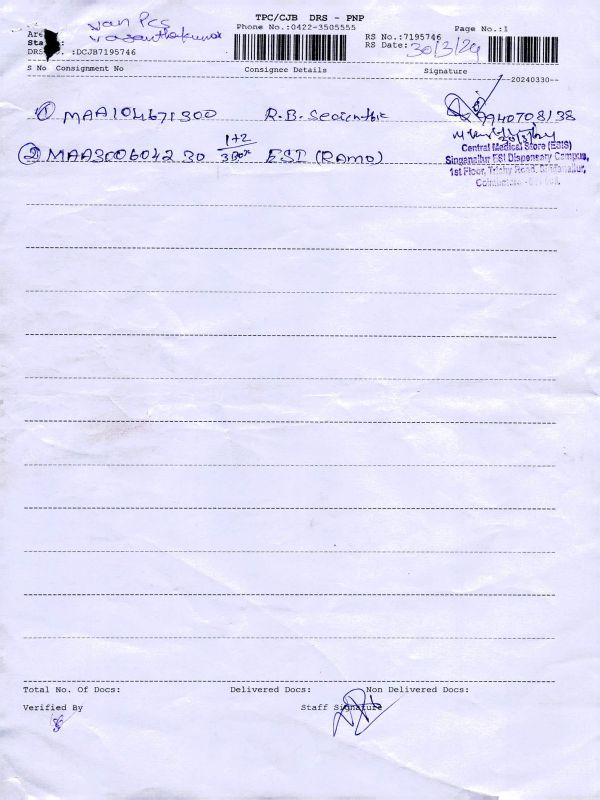 TPC/CJB DRS - PNP
van Pcs
Phone No.:0422-3505555
Page No.:1
Are
RS No.:7195746
Sta
RS Date: 30/3/24
DRS No. :DCJB7195746
S No Consignment No Consignee Details Signature
--20240330--
① MAA104671300 R.B.
② MAA3006042 30 1+2 3 Box ESI (RAmo)
Central Medical Store (ESIS)
Singanallur ESI Dispensary Campus,
1st Floor, Trichy Road, Singanallur,
Coimbatore -
Total No. Of Docs: Delivered Docs: Non Delivered Docs:
Verified By Staff Signature